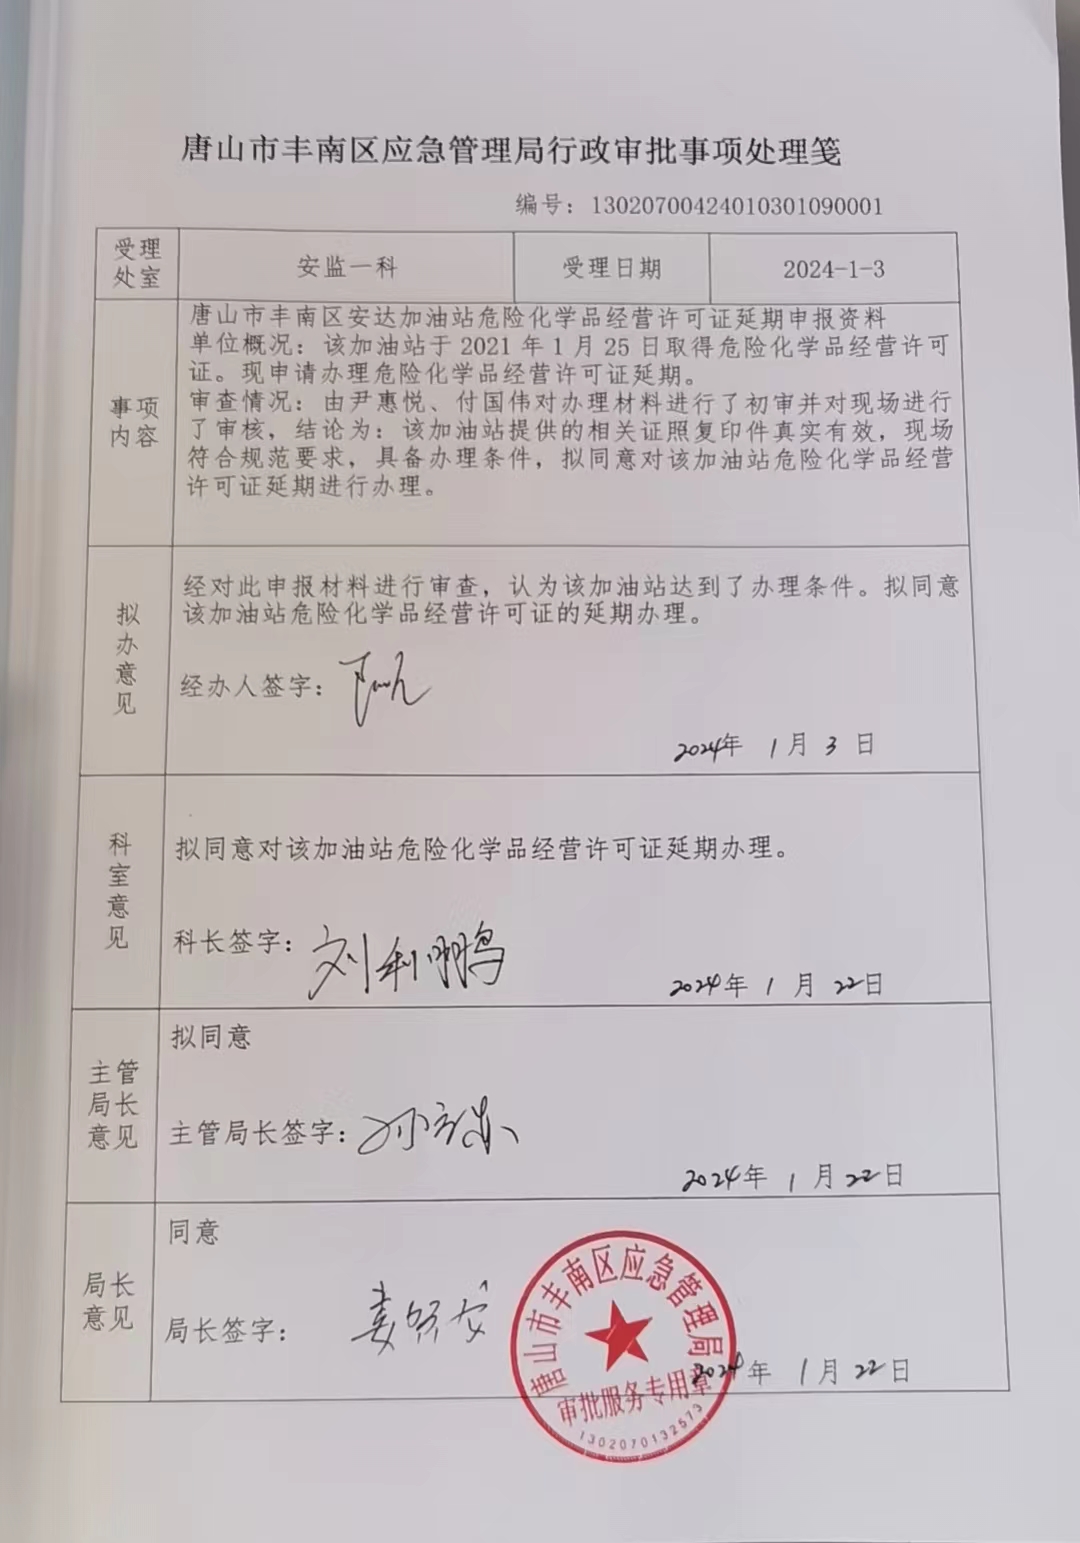 唐山市丰南区应急管理局行政审批事项处理笺
编号：13020700424010301090001
受理处室
安监一科
受理日期
2024-1-3
事项内容
唐山市丰南区安达加油站危险化学品经营许可证延期申报资料
单位概况：该加油站于 2021 年 1 月 25 日取得危险化学品经营许可
证。现申请办理危险化学品经营许可证延期。
审查情况：由尹惠悦、付国伟对办理材料进行了初审并对现场进行
了审核，结论为：该加油站提供的相关证照复印件真实有效，现场
符合规范要求，具备办理条件，拟同意对该加油站危险化学品经营
许可证延期进行办理。
拟办意见
经对此申报材料进行审查，认为该加油站达到了办理条件。拟同意
该加油站危险化学品经营许可证的延期办理。
经办人签字：
2024年 1 月 3 日
科室意见
拟同意对该加油站危险化学品经营许可证延期办理。
科长签字：刘利鹏
2024年 1 月 22日
主管局长意见
拟同意
主管局长签字：
2024年 1 月 22日
局长意见
同意
局长签字：
2024年 1 月 22日
唐山市丰南区应急管理局
审批服务专用章
1302070132573